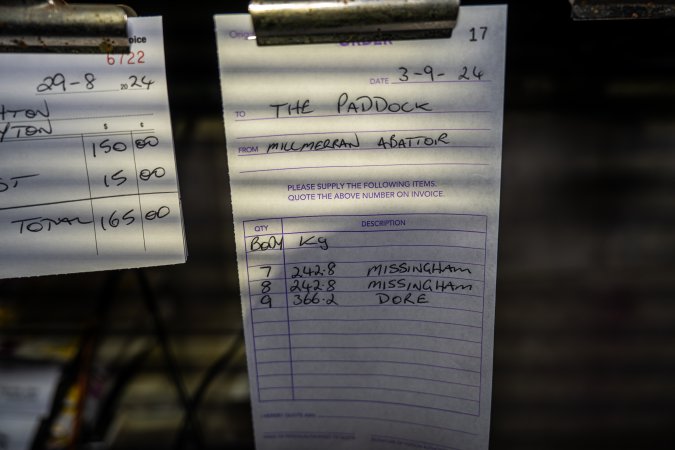 oice
6722
29-8 2024
HTON
YTON
$ ¢
150 00
ST 15 00
TOTAL 165 00
ORDER 17
DATE 3-9-24
TO THE PADDOCK
FROM MILLMERRAN ABATTOIR
PLEASE SUPPLY THE FOLLOWING ITEMS.
QUOTE THE ABOVE NUMBER ON INVOICE.
QTY DESCRIPTION
BODY Kg
7 242.8 MISSINGHAM
8 242.8 MISSINGHAM
9 366.2 DORE